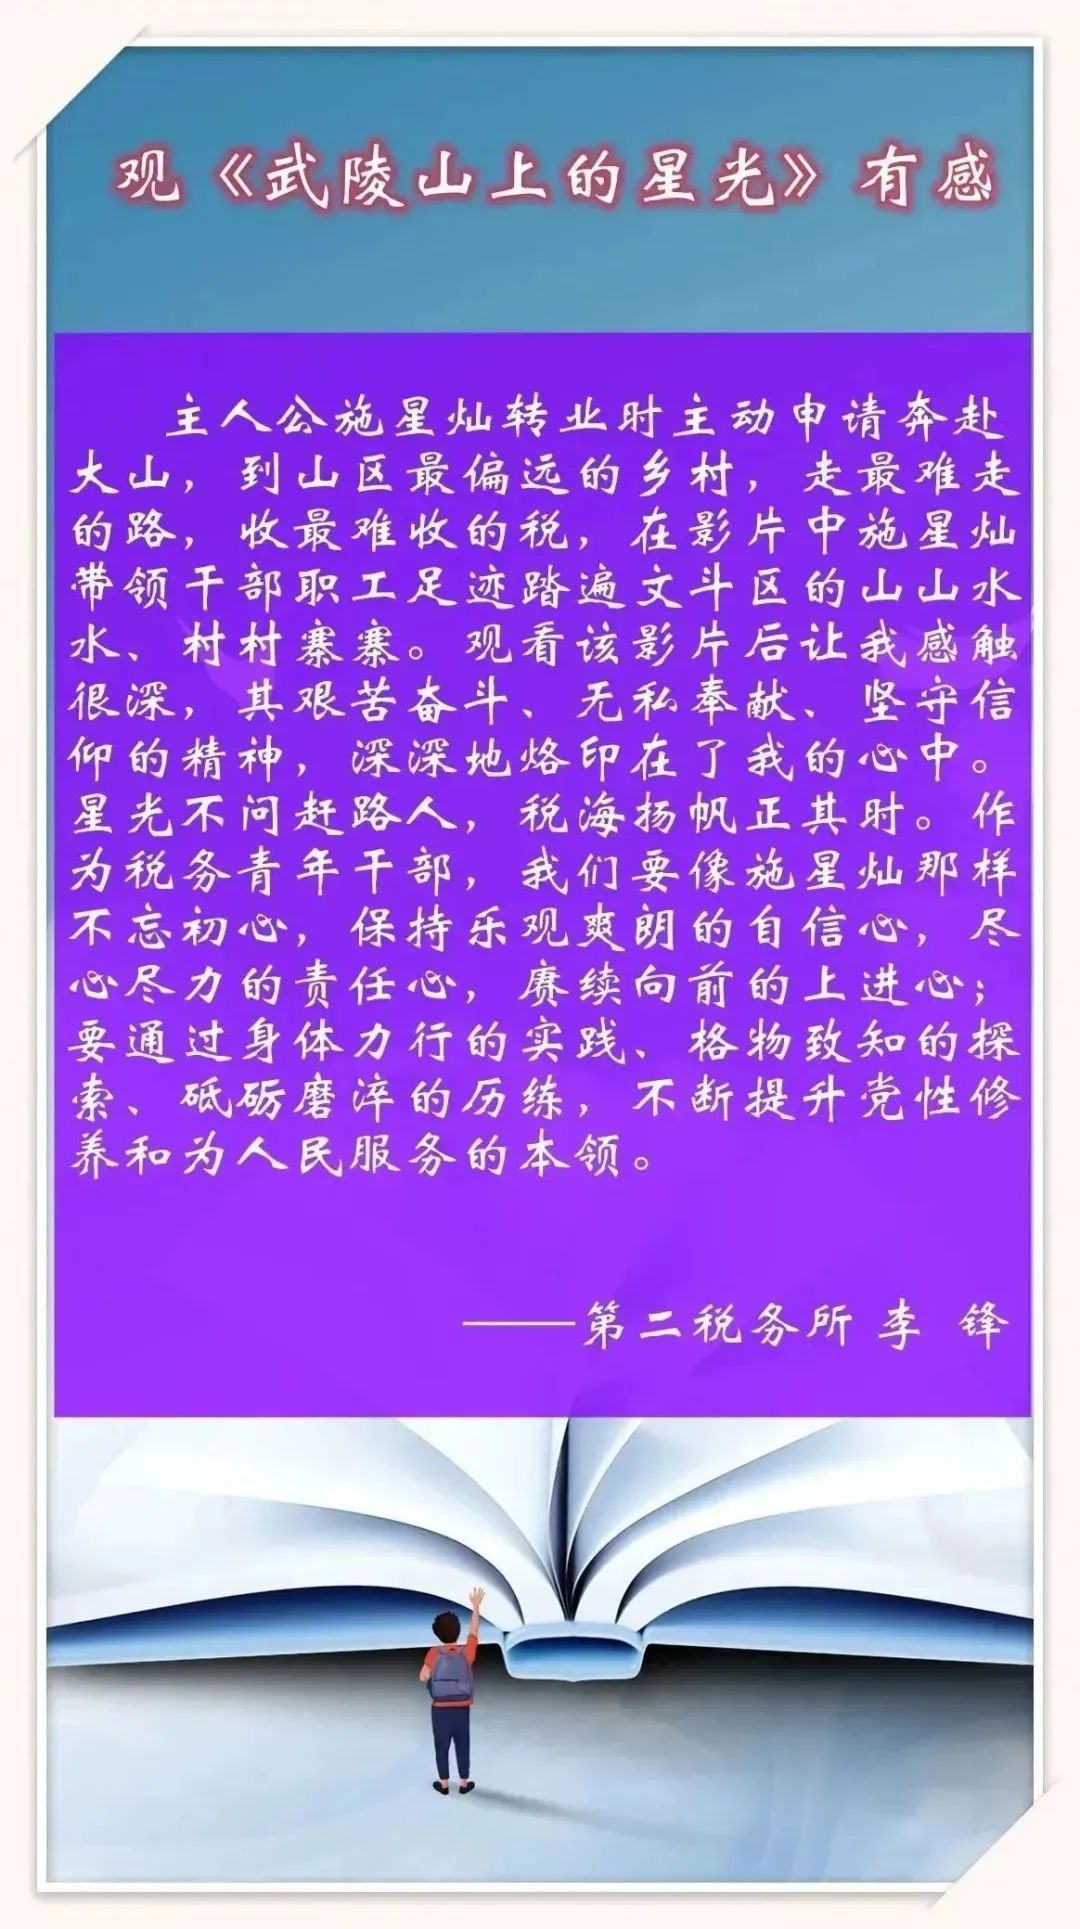 观《武陵山上的星光》有感
主人公施星灿转业时主动申请奔赴
大山，到山区最偏远的乡村，走最难走
的路，收最难收的税，在影片中施星灿
带领干部职工足迹踏遍文斗区的山山水
水、村村寨寨。观看该影片后让我感触
很深，其艰苦奋斗、无私奉献、坚守信
仰的精神，深深地烙印在了我的心中。
星光不问赶路人，税海扬帆正其时。作
为税务青年干部，我们要像施星灿那样
不忘初心，保持乐观爽朗的自信心，尽
心尽力的责任心，赓续向前的上进心；
要通过身体力行的实践、格物致知的探
索、砥砺磨淬的历练，不断提升党性修
养和为人民服务的本领。
——第二税务所 李 锋